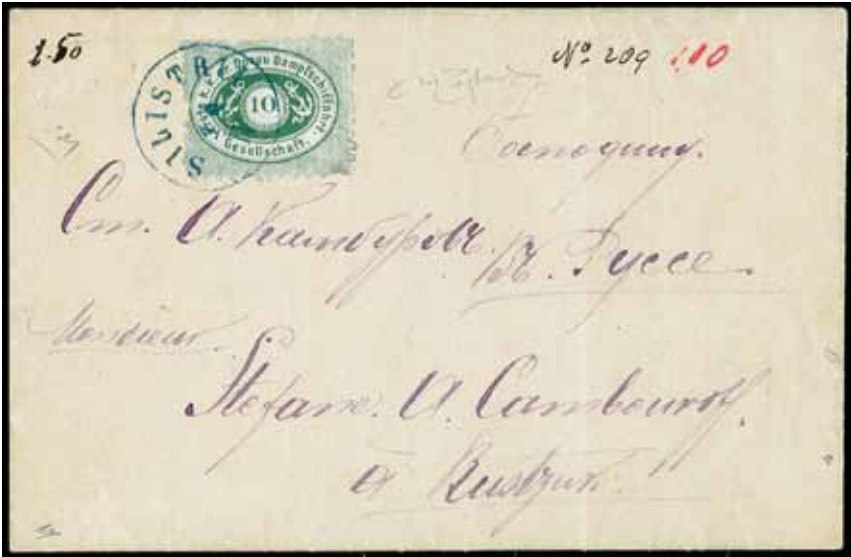 1.50
№ 209 1.10
SILISTRIA
Erste k.k. pr. Donau Dampfschiffahrt. Gesellschaft.
10
Господину.
Ст. А. Камбуровъ. въ. Руссе.
Monsieur.
Stefane. A. Cambouroff.
à Rustzuk.